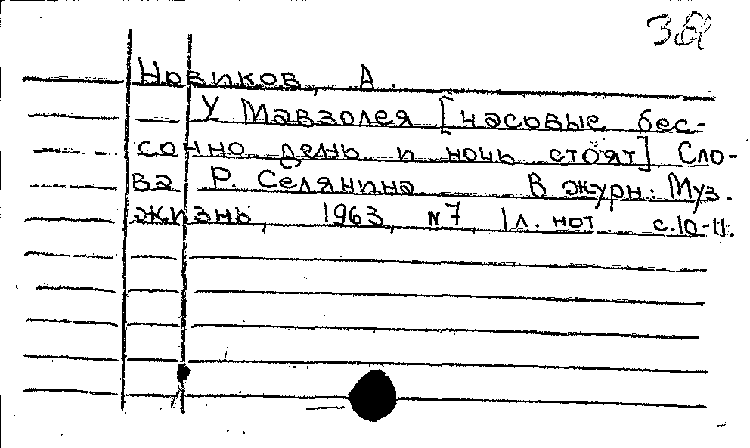 Новиков, А.
У Мавзолея [часовые бес-
сонно день и ночь стоят] Сло-
ва Р. Селянина В журн.: Муз.
жизнь, 1963, №7, 1л. нот с.10-11.